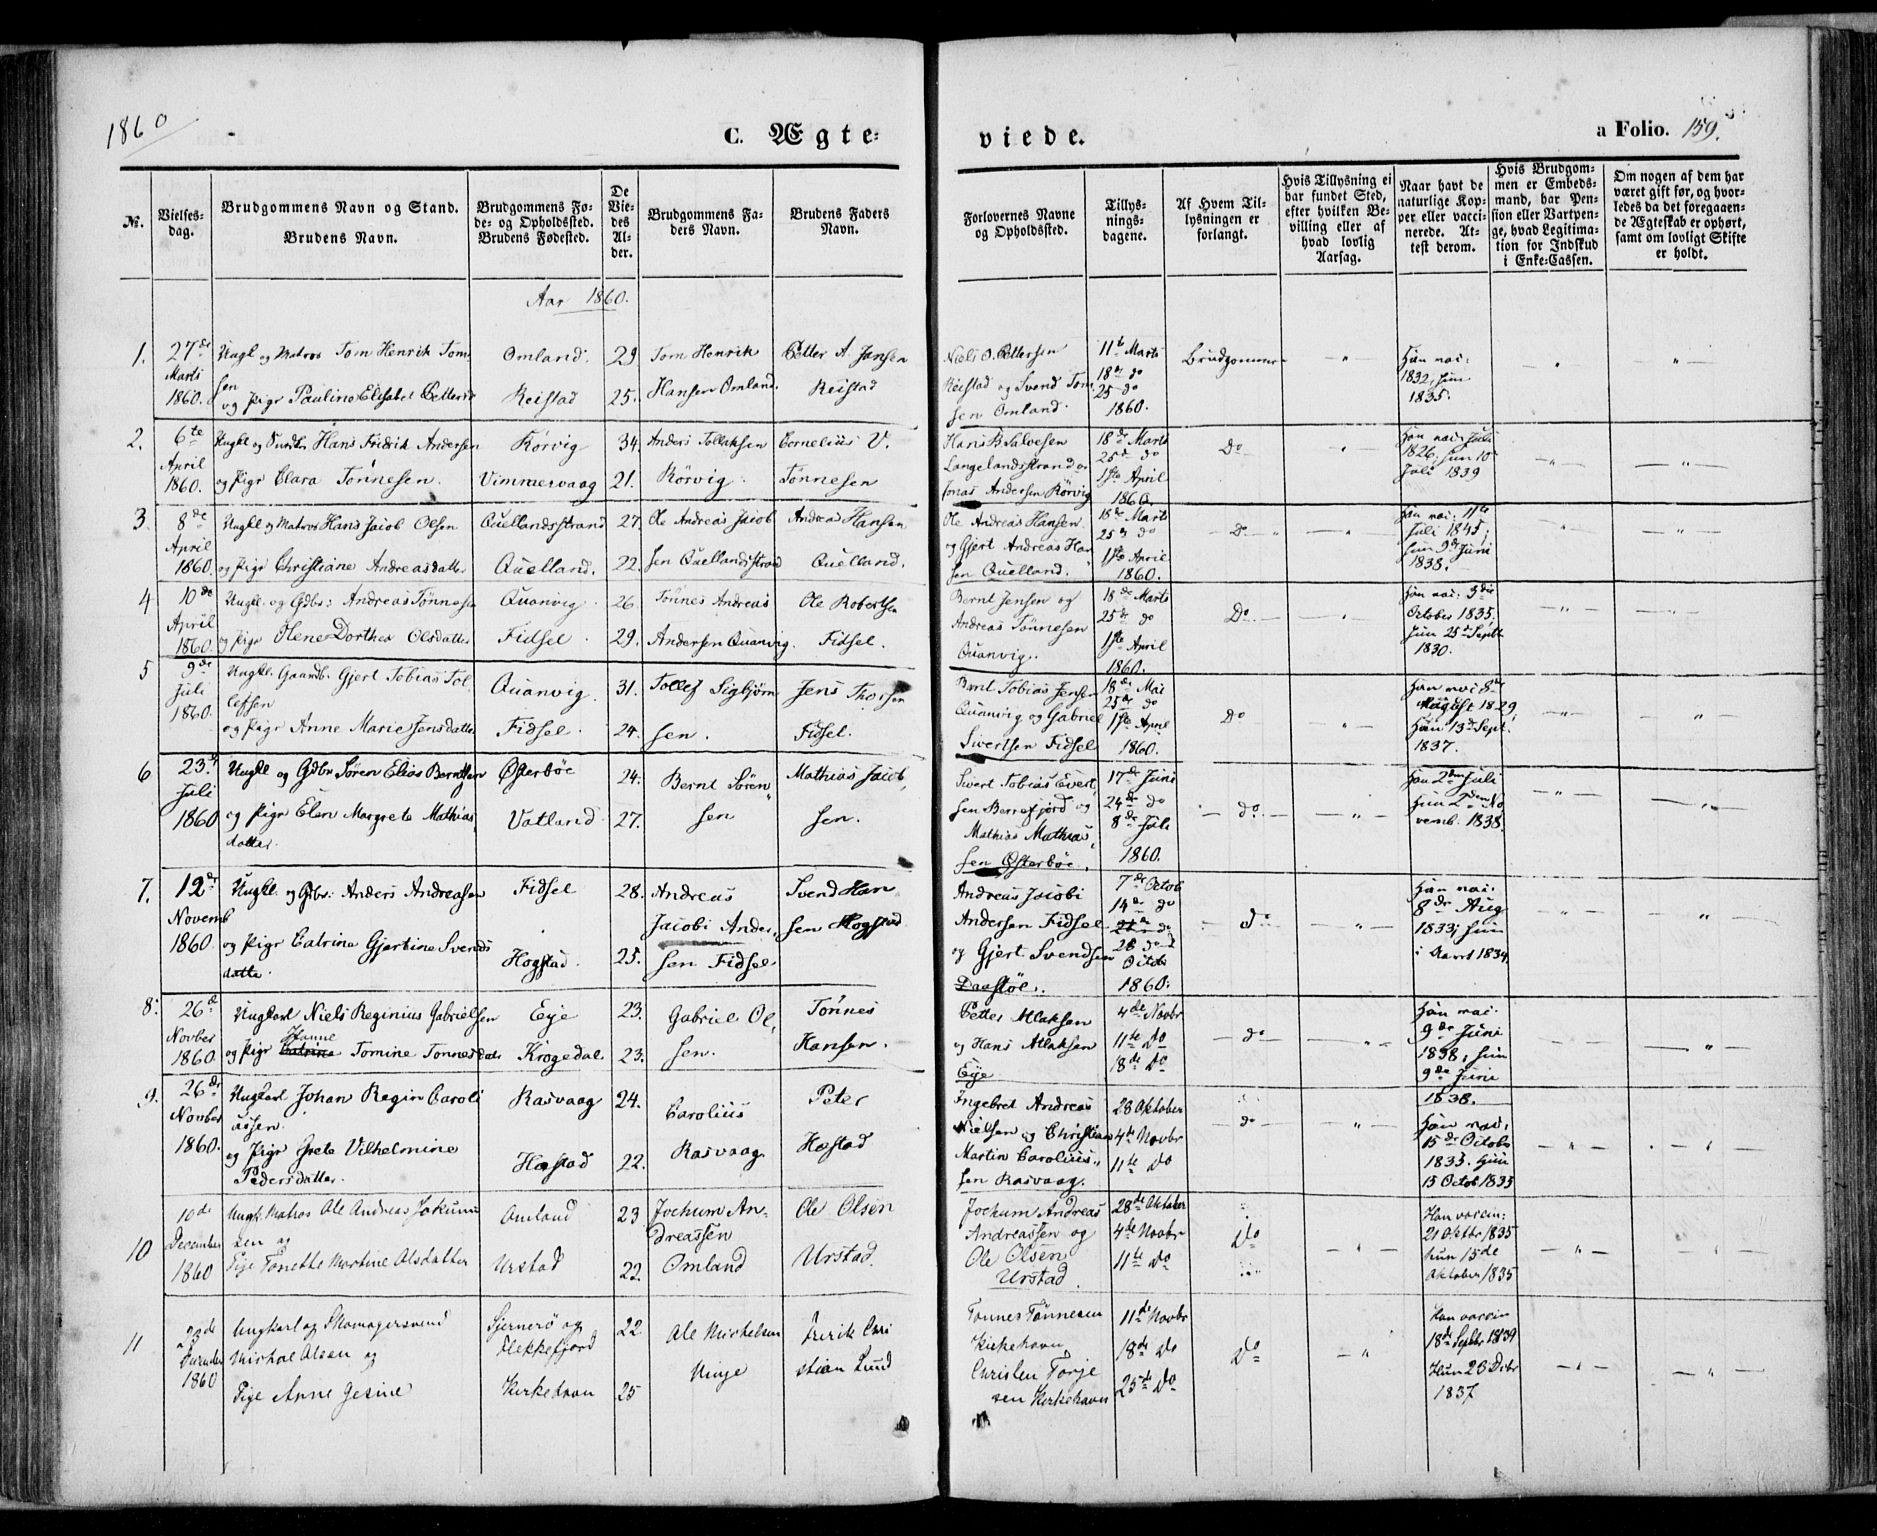 1860
C. Ægte-
viede.
a Folio. 159.
№.
Vielses-
dag.
Brudgommens Navn og Stand.
Brudens Navn.
Brudgommens Fø-
de- og Opholdssted.
Brudens Fødested.
De
Vie-
des
Al-
der.
Brudgommens Fa-
ders Navn.
Brudens Faders
Navn.
Forlovernes Navne
og Opholdssted.
Tillys-
nings-
dagene.
Af Hvem Til-
lysningen er
forlangt.
Hvis Tillysning ei
har fundet Sted,
efter hvilken Be-
villing eller af
hvad lovlig
Aarsag.
Naar havt de
naturlige Kop-
per eller vacci-
nerede. At-
test derom.
Hvis Brudgom-
men er Embeds-
mand, har Pen-
sion eller Vartpen-
ge, hvad Legitima-
tion for Indskud
i Enke-Cassen.
Om nogen af dem har
været gift før, og hvor-
ledes da det foregaaen-
de Ægteskab er ophørt,
samt om lovligt Skifte
er holdt.
Aar 1860.
1. 27de Marts 1860.
Ungk og Matros Tom Henrik Tom
sen
og Pige Pauline Elisabet Petters
Omland. 29
Reistad 25.
Tom Henrik
Hansen Omland.
Petter A. Jansen
Reistad
Niels O. Pettersen
Reistad og Svend Tom
sen Omland.
11te Marts
18de do
25 do
1860.
Brudgommen
Han vac:
1832, hun
1835.
2. 6te April 1860.
Hans Fredrik Andersen
og Pige Clara Tønnesen.
Rørvig 34.
Vimmervaag 21.
Anders Tollaksen
Rørvig.
Cornelius V.
Tønnesen
Hans B Salvesen
Langelandsstrand og
Jonas Andersen Rørvig
18de Marts
25de do
1ste April
1860.
Do
Han vac: Juli
1826, hun 10de
Juli 1839
3. 8de April 1860.
Ungkl og Matros Hans Jacob Olsen
og Pige Christiane Andreasdatter
Quellandsstrand 27.
Quelland. 22.
Ole Andreas Jacob
sen Quellandsstrand
Andreas Hansen
Quelland.
Ole Andreas Hansen
og Gjert Andreas Han
sen Quelland.
18de Marts
25de do
1ste April
1860.
Do
Han vac: 11te
Juli 1845;
hun 9de Juni
1838.
4 10de April 1860.
Ungkl. og Gdbr: Andreas Tønnesen
og Pige Olene Dorthea Olsdatter
Quanvig. 26
Fidsel. 29.
Tønnes Andreas
Andersen Quanvig.
Ole Robertsen
Fidsel.
Bernt Jensen og
Andreas Tønnesen
Quanvig.
18de Marts
25de do
1ste April
1860.
Do
Han vac: 9de
October 1835.
hun 25de Septb
1830.
5 9de Juli 1860.
Ungkl. Gaardb. Gjert Tobias Tol
lefsen
og Pige Anne Marie Jensdatter
Quanvig. 31.
Fidsel. 24.
Tollef Sigbjørn
sen.
Jens Thorsen
Fidsel.
Bernt Tobias Jensen
Quanvig og Gabriel
Sivertsen Fidsel
18de Mai
25de do
1ste April
1860.
Do
Han vac: 8de
August 1829,
Hun 13de Sept.
1837.
6 23de Juli 1860
Ungkl og Gdbr Søren Elias Berntsen
og Pige Elen Margrete Mathias
datter.
Østerbøe 24.
Vatland 27.
Bernt Søren
sen
Mathias Jacob
sen.
Sivert Tobias Evert
sen Berrefjord og
Mathias Mathias
sen Østerbøe.
17de Juni
24de do
8de Juli
1860.
do.
Han 2den Juli
Hun 2den No
vemb. 1838.
7. 12de Novemb 1860.
Ungkl. og Gdbr: Anders Andreasen
og Pige Catrine Gjertine Svends
datter
Fidsel 28.
Hogstad. 25.
Andreas
Jacobi Ander
sen Fidsel.
Svend Han
sen Hogstad
Andreas Jacobi
Andersen Fidsel
og Gjert Svendsen
Daastøl.
7de Octob
14de do
21de do
28 do
Octob
1860.
do
Han vac.
8de Aug
1833; hun
i Aaret 1834.
8. 26de Novber 1860
Ungkarl Niels Reginius Gabrielsen
og Pige Catrine Hanne Tomine Tønnesdatr
Eye 23.
Krogedal 23.
Gabriel Ol
sen.
Tønnes
Hansen.
Petter Atlaksen
og Hans Atlaksen
Eye
4de Novbr
11te Do
18de Do
do
Han vac.
9de Juni
1838, hun
9de Juni
1838.
9. 26de Novber 1860.
Ungkarl Johan Regin Caroli
ussen.
og Pige Grete Vilhelmine
Pedersdatter.
Rasvaag 24.
Hæstad 22.
Carolius
Rasvaag.
Peter
Hæstad
Ingebret Andreas
Nielsen og Christian
Martin Carolius
sen Rasvaag.
28 Oktober
4de Novbr
11te Do
do
Han vac.
15de Octobr
1833. Hun
15 Octob 1835
10 10de December 1860
Ungk. Matros Ole Andreas Jokum
sen og
Pige Tonette Martine Olsdatter
Omland 23
Urstad 22.
Jochum An-
dreassen
Omland
Ole Olsen
Urstad.
Jochum Andreas
Andreassen og
Ole Olsen
Urstad.
28de Oktober
4de Novbr
11te Do
Do
Han vaccin:
21 Oktbr 1835
hun 15de
Oktober 1835
11 23de December 1860
Ungkarl og Skomagersvend
Michal Olsen og
Pige Anne Gesine
Sjernerø og
Flekkefjord 22
Kirkehavn 25
Ole Michelsen
Fredrik Chri
stian Lund
Tønnes Tønnesen
Kirkehavn
Christen Torje
sen Kirkehavn
11de Novbr
18de Do
25de Do
Do
Han vaccin
18de Septbr 1839
Hun 26 Decbr
1837.